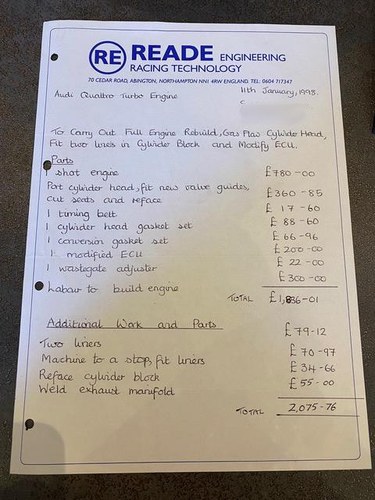 RE READE ENGINEERING
RACING TECHNOLOGY
70 CEDAR ROAD, ABINGTON, NORTHAMPTON NN1 4RW ENGLAND. TEL: 0604 717347
Audi Quattro Turbo Engine 11th January, 1993.
c
To Carry Out Full Engine Rebuild, Gas Flow Cylinder Head,
Fit two liners in Cylinder Block and Modify ECU.
Parts
1 short engine £780-00
Port cylinder head, fit new valve guides,
cut seats and reface £360-85
1 timing belt £17-60
1 cylinder head gasket set £88-60
1 conversion gasket set £66-96
1 modified ECU £200-00
1 wastegate adjuster £22-00
Labour to build engine £300-00
TOTAL £1,836-01
Additional Work and Parts
Two liners £79-12
Machine to a stop, fit liners £70-97
Reface cylinder block £34-66
Weld exhaust manifold £55-00
TOTAL 2,075-76